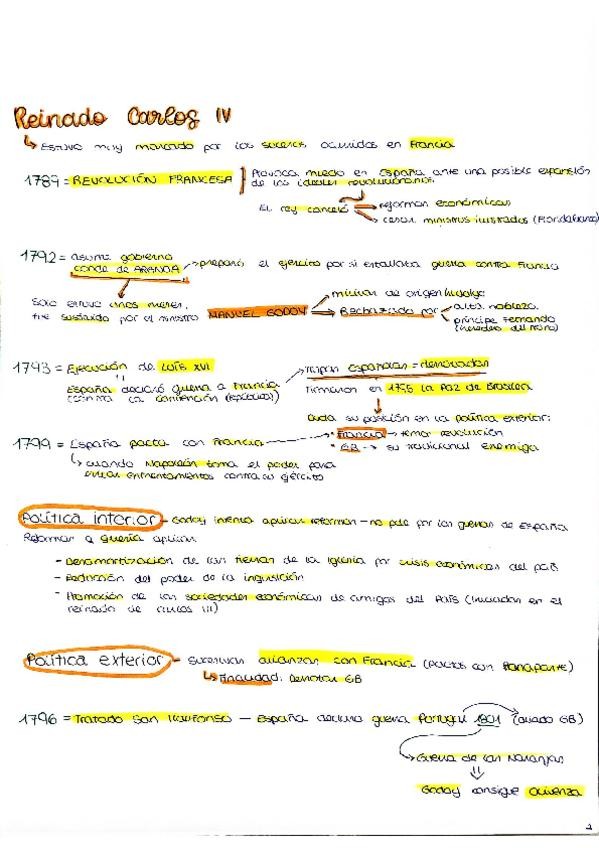 Reinado Carlos IV
↳ Estuvo muy marcado por los sucesos ocurridos en Francia
1789 = REVOLUCIÓN FRANCESA
Provoca miedo en España ante una posible expansión
de los ideales revolucionarios.
El rey canceló → reformas económicas
→ cesar ministros ilustrados (Floridablanca)
1792 = asume gobierno
conde de ARANDA → preparó el ejército por si estallaba guerra contra Francia
Solo estuvo unos meses,
fue sustituido por el ministro MANUEL GODOY
militar de origen hidalgo
Rechazado por
alta nobleza
príncipe Fernando
(heredero del trono)
1793 = Ejecución de Luis XVI
España declaró guerra a Francia
(contra la convención (república))
tropas españolas = derrotadas
Firmaron en 1795 la Paz de Basilea
Duda su posición en la política exterior:
• Francia → temor revolución
• GB → su tradicional enemiga
1799 = España pacta con Francia
↳ cuando Napoleón toma el poder para
evitar enfrentamientos contra su ejército
Política interior - Godoy intenta aplicar reformas - no pudo por las guerras de España
Reformas q quería aplicar:
- Desamortización de las tierras de la Iglesia por crisis económicas del país
- Reducción del poder de la inquisición
- Promoción de las sociedades económicas de amigos del País (iniciadas en el
reinado de Carlos III)
Política exterior - Sucesivas alianzas con Francia (pactos con Bonaparte)
↳ Finalidad: Derrotar GB
1796 = Tratado San Ildefonso - España declara guerra Portugal 1801 (aliado GB)
Guerra de las Naranjas
Godoy consigue